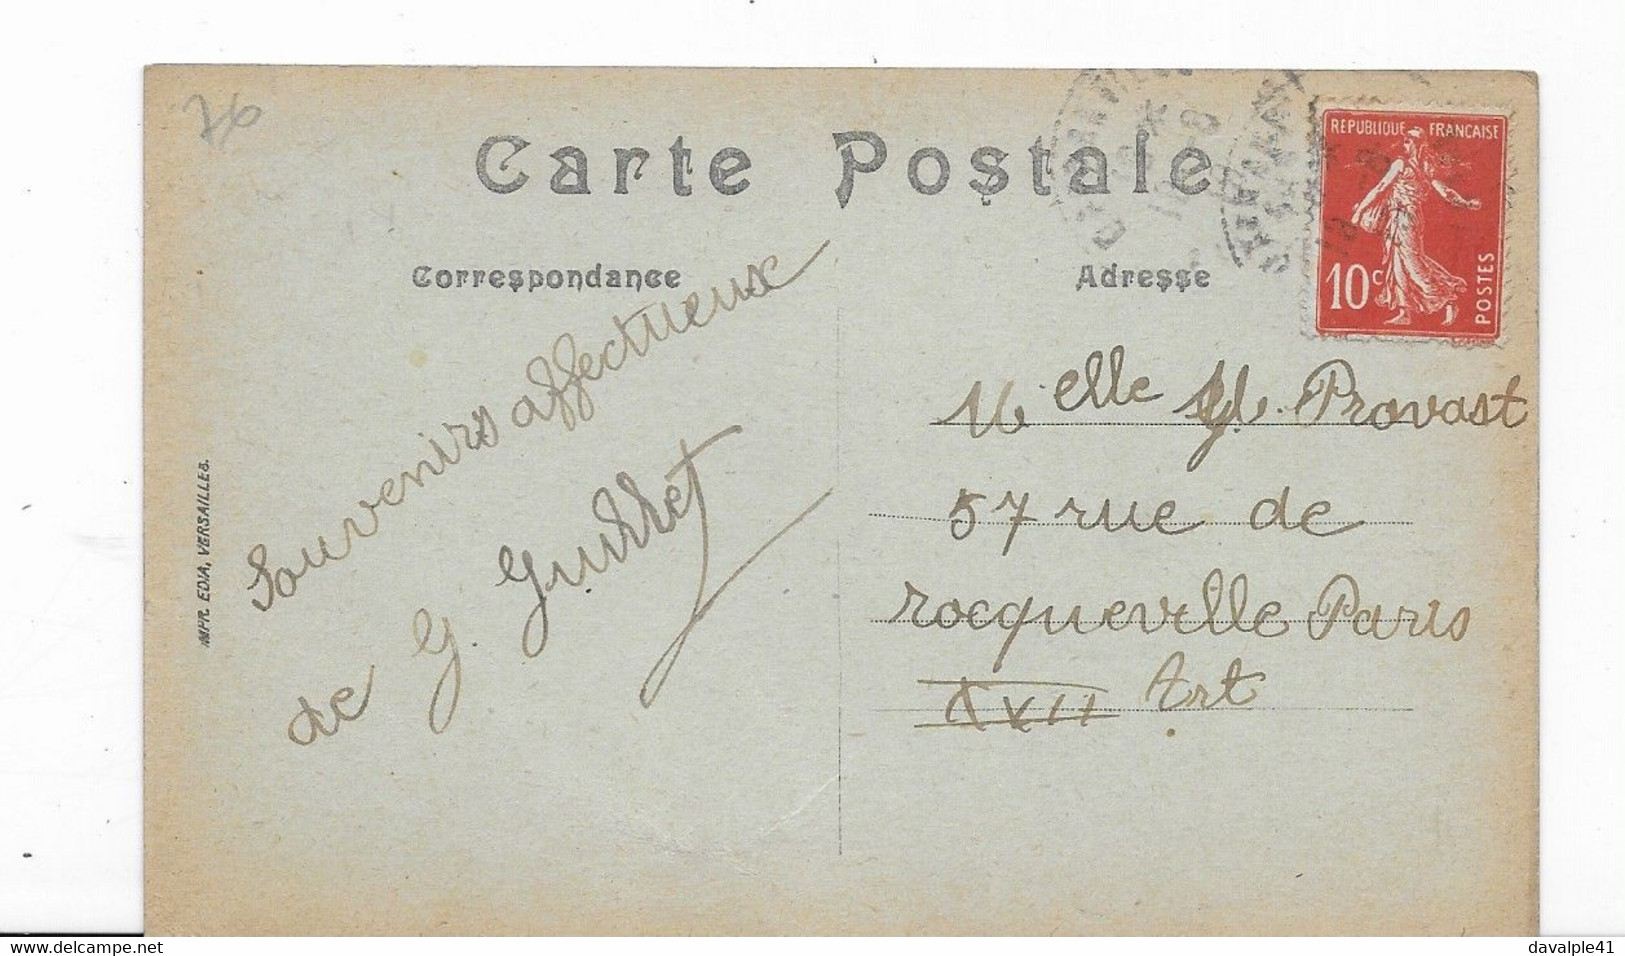 76
Carte Postale
Correspondance
Adresse
RÉPUBLIQUE FRANÇAISE
10c
POSTES
Souvenirs affectueux
de G. Guillet
Melle Provast
57 rue de
rocqueville Paris
XVII Art
IMPR. EDIA, VERSAILLES.
www.delcampe.net
davalple41